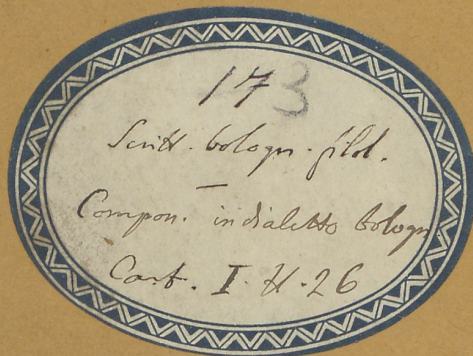 173
Scritt. bologn. filol.
Compon. in dialetto bologn
Cart. I. H. 26